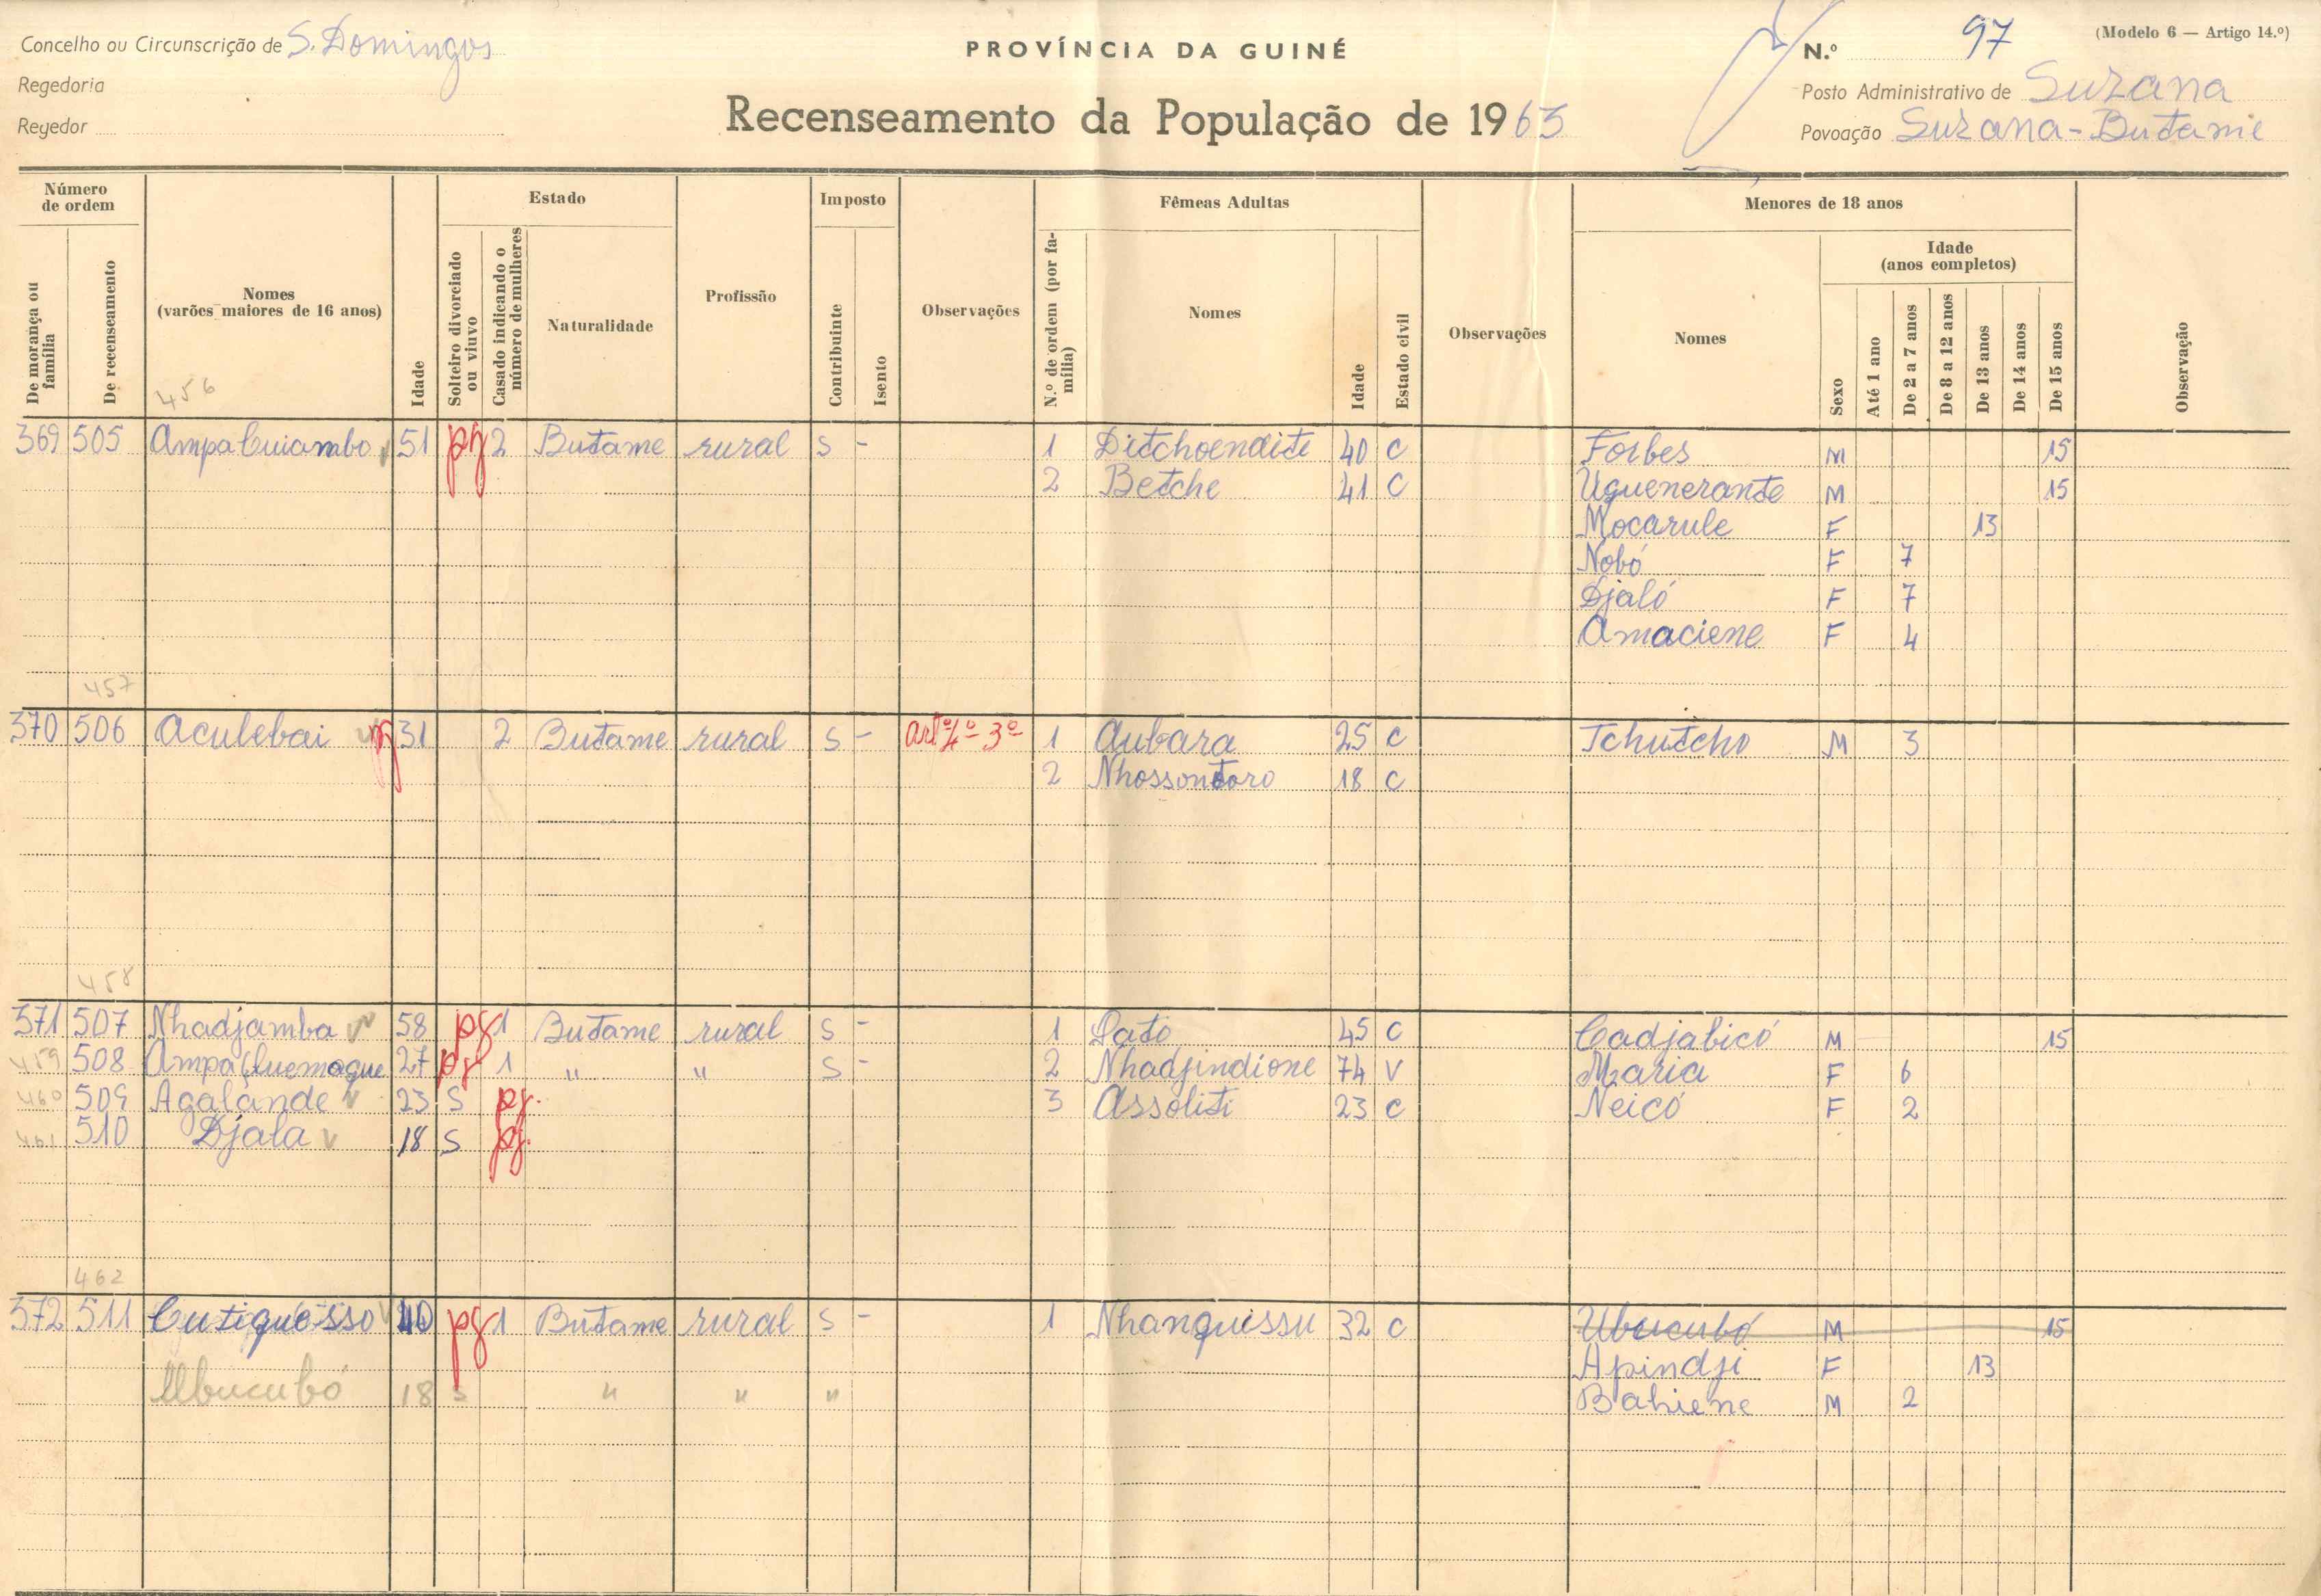 Concelho ou Circunscrição de S. Domingos
PROVÍNCIA DA GUINÉ
N.º 97
(Modelo 6 — Artigo 14.º)
Regedoria
Posto Administrativo de Suzana
Regedor
Recenseamento da População de 1963
Povoação Suzana-Butame
Número de ordem
De morança ou família
De recenseamento
Nomes (varões maiores de 16 anos)
Idade
Estado
Solteiro divorciado ou viuvo
Casado indicando o número de mulheres
Naturalidade
Profissão
Imposto
Contribuinte
Isento
Observações
Fêmeas Adultas
N.º de ordem (por família)
Nomes
Idade
Estado civil
Observações
Menores de 18 anos
Nomes
Sexo
Idade (anos completos)
Até 1 ano
De 2 a 7 anos
De 8 a 12 anos
De 13 anos
De 14 anos
De 15 anos
Observação
456
369 505 Ampa Cuiambo 51 pg 2 Butame rural S - 1 Ditchoendite 40 C Forbes M 15
2 Betche 41 C Uguenerante M 15
Mocarule F 13
Nobó F 7
Djaló F 7
Amaciene F 4
457
370 506 Aculebai pg 31 2 Butame rural S - Artº 4º 3º 1 Aubara 25 C Tchutcho M 3
2 Nhossontoro 18 C
458
371 507 Nhadjamba 58 pg 1 Butame rural S - 1 Sato 45 C Cadjabicó M 15
459 508 Ampa Quemoque 27 pg 1 " " S - 2 Nhadjindione 74 V Maria F 6
460 509 Agalande 23 S pg. 3 Assoliti 23 C Neicó F 2
461 510 Djala 18 S pg.
462
372 511 Cutiquósso 40 pg 1 Butame rural S - 1 Nhanquissu 32 C Ubucubó M 15
Apindji F 13
Ubucubó 18 S " " " Bahiene M 2